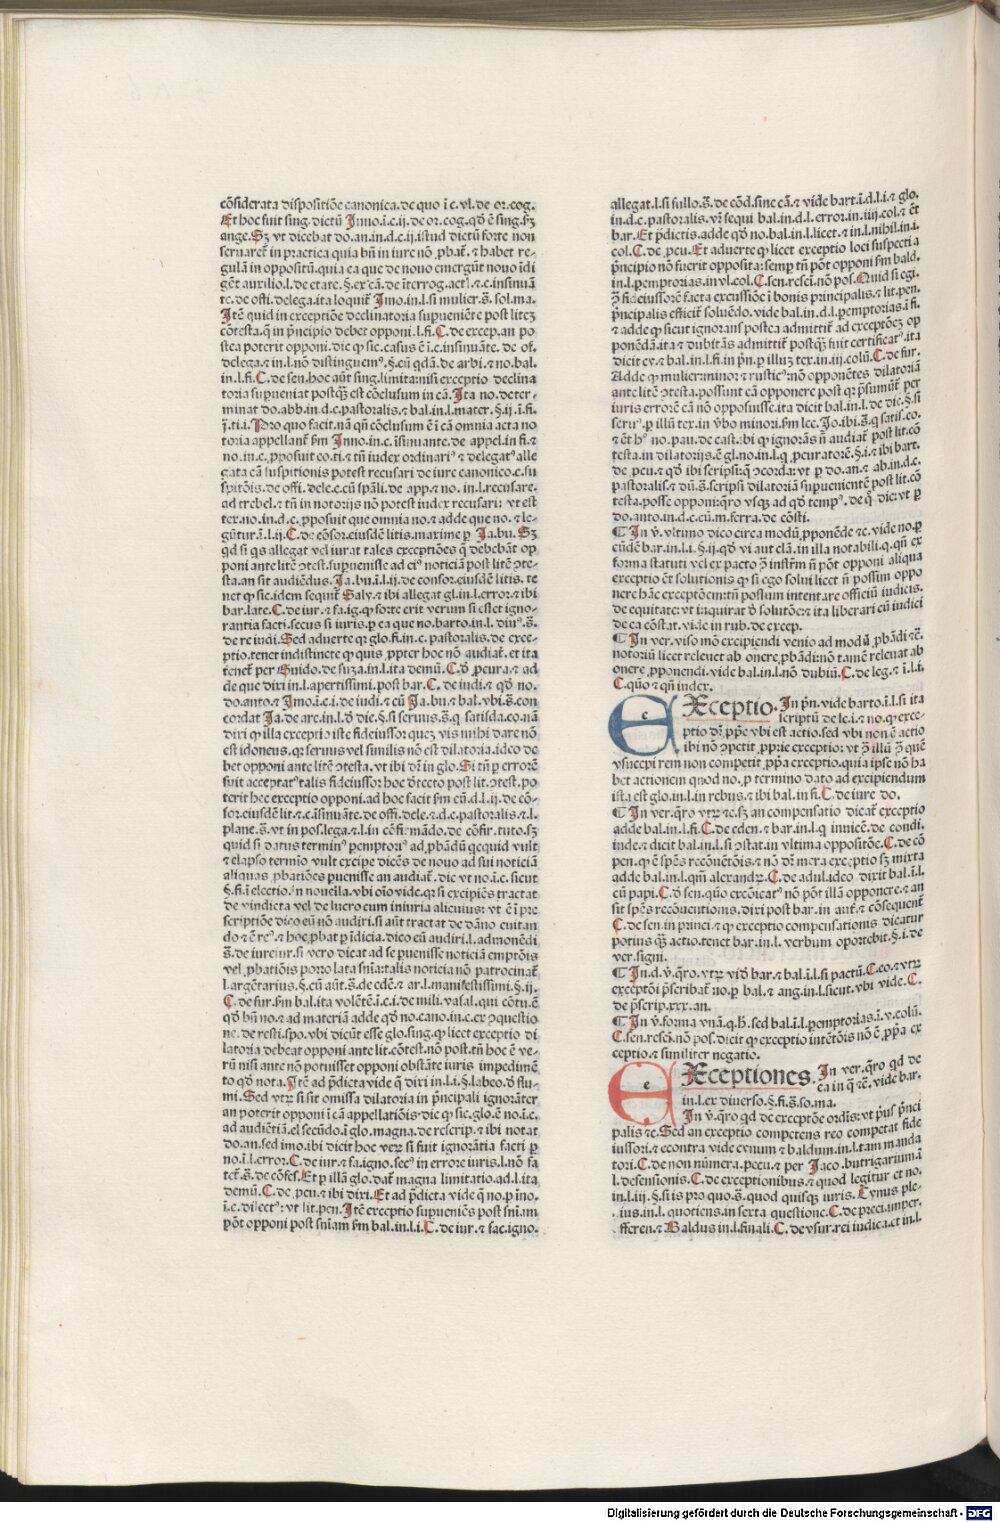 cōsiderata dispositiōe canonica.de quo ī c.vl.de or.cog.
Et hoc fuit sing.dictū Inno.ī c.ij.de or.cog.qd̄ ē sing.fm̄
ange.Sꝫ vt dicebat do.an.in.d.c.ij.istud dictū forte non
seruaret̄ in practica quia
gulā in oppositū.quia ea que de nouo emergūt nouo īdi
gēt auxilio.l.de etate.§.ex cā.de īterrog.act.⁊ c.insinuā
te.de offi.delega.ita loquit̄ Imo.in.l.si mulier.§.sol.ma.
Itē quid in exceptiōe declinatoria supueniēte post litez
cōtesta.q̄ in pn̄cipio debet opponi.l.fi.C.de excep.an po
stea poterit opponi.dic ꝙ sic.casus ē ī c.insinuāte.de of.
delega.⁊ in.l.nō distinguemꝰ.§.cū qdā.de arbi.⁊ no.bal.
in.l.fi.C.de sen.hoc aūt sing.limita:nisi exceptio declina
toria supueniat postqꝫ est cōclusum in cā.Ita no.deter-
minat do.abb.in.d.c.pastoralis.⁊ bal.in.l.mater.§.ij.ī.fi.
toria appellant̄ fm̄ Inno.in.c.īsinuante.de appel.in fi.⁊
no.in.c.pposuit co.ti.⁊ tn̄ iudex ordinariꝰ ⁊ delegatꝰ alle
gata cā suspitionis potest recusari de iure canonico.c.su
spitōis.de offi.dele.c.cū spāli.de app.⁊ no.in.l.recusare.
ad trebel.⁊ tn̄ in notorijs nō potest iudex recusari: vt est
tex.no.in.d.c.pposuit que omnia no.⁊ adde que no.⁊ le-
gūtur.ī.l.ij.C.de cōsor.eiusdē litis.maxime ꝑ Ja.bu.Sꝫ
qd si qs allegat vel iurat tales exceptiōes q̄ debebāt op
poni ante litē ꝯtest.supuenisse ad eiꝰ noticiā post litē ꝯte-
sta.an sit audiēdus.Ja.bu.ī.l.ij.de consor.eiusdē litis.te
net ꝙ sic.idem sequit̄ Saly.⁊ ibi allegat gl.in.l.error.⁊ ibi
bar.late.C.de iur.⁊ fa.ig.ꝙ forte erit verum si esset igno-
rantia facti.secus si iuris.ꝑ ea que no.barto.in.l.diuꝰ.§.
de re iudi.Sed aduerte qꝛ glo.fi.in.c.pastoralis.de exce-
ptio.tenet indistincte ꝙ quis ppter hoc nō audiat̄.et ita
tenet̄ per Guido.de suza.in.l.ita demū.C.d̄ pcura.⁊ ad
de que dixi in.l.apertissimi.post bar.C.de iudi.⁊ qd̄ no.
do.anto.⁊ Imo.ī.c.i.de iudi.⁊ cū Ja.bu.⁊ bal.vbi.§.con
cordat Ja.de are.in.l.d̄ die.§.si seruus.§.q satisda.co.nā
dixi ꝙ illa exceptio iste fideiussor quez vis mihi dare nō
est idoneus.qꝛ seruus vel similis nō est dilatoria.ideo de
bet opponi ante litē ꝯtesta.vt ibi dr̄ in glo.Si tn̄ ꝑ errorē
fuit acceptatꝰ talis fideiussor hoc dtecto post lit.ꝯtest.po
terit hec exceptio opponi.ad hoc facit fm̄ eū.d.l.ij.de cō-
sor.eiusdē lit.⁊ c.īsinuāte.de offi.dele.⁊ d.c.pastoralis.⁊ l.
plane.§.vt in pos.lega.⁊ l.in cōfi.mādo.de cōfir.tuto.sꝫ
quid si datus terminꝰ pemptoriꝰ ad pbādū qequid vult
⁊ elapso termio vult excipe dicēs de nouo ad sui noticiā
aliquas pbatiōes puenisse an audiat̄.dic vt no.ī c.sicut
§.fi.ī electio.in nouella.vbi oīo vide.qꝛ si excipiēs tractat
de vindicta vel de lucro cum iniuria alicuius: vt ē ī pre
scriptiōe dico eū nō audiri.si aūt tractat de dāno euitan
do ⁊ ē reꝰ.⁊ hoc pbat ꝑ īdicia.dico eū audiri.l.admonēdi
§.de iureiur.si vero dicat ad se puenisse noticiā emptōis
vel pbatiōis porro lata snīa:talis noticia nō patrocinat̄
l.argētarius.§.cū aūt.§.de edē.⁊ ar.l.manifestissimi.§.ij.
C.de fur.fm̄ bal.ita volētē.ī.c.i.de mili.vasal.qui cōtu.ē.
qd̄ bn̄ no.⁊ ad materiā adde qd̄ no.cano.in.c.ex ꝯquestio
ne.de resti.spo.vbi dicūt esse glo.sing.ꝙ licet exceptio di
latoria debeat opponi ante lit.cōtest.nō post.tn̄ hoc ē ve-
rū nisi ante nō potuisset opponi obstāte iuris impedimē
to qd̄ nota.Itē ad pdicta vide q̄ dixi in.l.i.§.labeo.d̄ flu-
mi.Sed vtꝝ si sit omissa dilatoria in pn̄cipali ignorāter
an poterit opponi ī cā appellatiōis:dic ꝙ sic.glo.ē no.ī.c.
ad audiētiā.el secūdo.ī glo.magna.de rescrip.⁊ ibi notat
do.an.sed imo.ibi dicit hoc veꝝ si fuit ignorātia facti ꝑ
no.ī.l.error.C.de iur.⁊ fa.igno.secꝰ in errore iuris.l.nō fa
tet̄.§.de cōfes.Et ꝑ illā glo.dat̄ magna limitatio.ad.l.ita
demū.C.de pcu.⁊ ibi dixi.Et ad pdicta vide q̄ no.ꝑ īno.
ī.c.dilectꝰ:vt lit.pen.Itē exceptio supueniēs post snīam
pōt opponi post snīam fm̄ bal.in.l.i.C.de iur.⁊ fac.igno.
allegat.l.si fullo.§.de cōd.sine cā.⁊ vide bart.ī.d.l.i.⁊ glo.
in.d.c.pastoralis.vn̄ sequi bal.in.d.l.error.in.iiij.col.⁊ ēt
bar.Et pdictis.adde qd̄ no.bal.in.l.licet.⁊ in.l.nihil.in.i.
col.C.de pcu.Et aduerte ꝙ licet exceptio loci suspecti a
pn̄cipio nō fuerit opposita:semp tn̄ pōt opponi fm̄ bald.
in.l.pemptorias.in vl.col.C.sen.resci.nō pos.Quid si egi
fideiussorē facta excussiōe ī bonis principalis.⁊ lit.pen.
pn̄cipalis efficit̄ soluēdo.vide bal.in.d.l.pemptorias.ī.fi.
⁊ adde ꝙ sicut ignorans postea admittit̄ ad exceptōez op
ponēdā.ita ⁊ dubitās admittit̄ postqꝫ fuit certificatꝰ.ita
dicit cy.⁊ bal.in.l.fi.in pn̄.ꝑ illuꝫ tex.in.iij.colū.C.de fur.
Adde ꝙ mulier:minor ⁊ rusticꝰ:nō opponētes dilatoriā
ante litē ꝯtesta.possunt eā opponere post qꝛ psumūt̄ per
iuris errorē eā nō opposuisse.ita dicit bal.in.l.de die.§.si
seruꝰ.ꝑ illū tex.in v̄bo minori.fm lec.Jo.ibi.§.q satis.co.
⁊ ēt hꝰ no.pau.de cast.ibi ꝙ ignorās n̄ audiat̄ post lit.cō
testa.in dilatorijs.ē gl.no.in.l.q pcuratorē.§.i.⁊ ibi bart.
de pcu.⁊ qd̄ ibi scripsi:q ꝯcorda: vt ꝑ do.an.⁊ ab.in.d.c.
pastoralis.⁊ dū.§.scripsi dilatoriā supuenientē post lit.cō
testa.posse opponi:qro vsqꝫ ad qd̄ tempꝰ.de q̄ dic:vt ꝑ
do.anto.in.d.c.cū.m.ferra.de cōsti.
¶ In v̄.vltimo dico circa modū pponēde ⁊c.vide no.ꝑ
eūdē bar.in.l.i.§.ij.qd̄ vi aut clā.in illa notabili.q.qn̄ ex
forma statuti vel ex pacto instrm̄ n̄ pōt opponi aliqua
exceptio ēt solutionis ꝙ si ego solui licet n̄ possim oppo
nere hāc exceptōem:tn̄ possum intentare officiū iudicis.
de equitate: vt inquirat d̄ solutōe:⁊ ita liberari cū iudici
de ea cōstat.vide in rub.de excep.
¶ In ver.viso mō excipiendi venio ad modū pbādi ⁊c̄.
notoriū licet releuet ab onere pbādi:nō tamē releuat ab
onere pponendi.vide bal.in.l.nō dubiū.C.de leg.⁊ ī.l.i.
C.quo ⁊ qn̄ iudex.
EXceptio.In pn̄.vide barto.ī.l.si ita
scriptū de le.i.⁊ no.ꝙ exce-
ptio dr̄ ppe vbi est actio.sed vbi non ē actio
ibi nō ꝯpetit pprie exceptio: vt illū quē
vsucepi rem non competit ppa exceptio.quia ipse nō ha
bet actionem quod no.ꝑ termino dato ad excipiendum
ista est glo.in.l.in rebus.⁊ ibi bal.in fi.C.de iure do.
¶ In ver.qro vtꝝ ⁊c.sꝫ an compensatio dicat̄ exceptio
adde bal.in.l.fi.C.de eden.⁊ bar.in.l.q inuicē.de condi.
inde.⁊ dicit bal.in.l.si ꝯstat.in vltima oppositōe.C.de cō
pen.ꝙ ē spēs recōuētōis.⁊ nō dr̄ mera exceptio sꝫ mixta
adde bal.in.l.qm̄ alexandꝝ.C.de adul.ideo dixit bal.ī.l.
cū papi.C.d̄ sen.quo excōicatꝰ nō pōt illā opponere.⁊ an
sit spēs recōuentionis.dixi post bar.in aut̄.⁊ cōsequent̄
C.de sen.in princi.⁊ ꝙ exceptio compensationis dicatur
potius qꝫ actio.tenet bar.in.l.verbum oportebit.§.i.de
ver.signi.
¶ In.d.v̄.qro.vtꝝ vid̄ bar.⁊ bal.ī.l.si pactū.C.eo.⁊ vtꝝ
exceptōi pscribat̄ no.ꝑ bal.⁊ ang.in.l.sicut.vbi vide.C.
de pscrip.xxx.an.
¶ In v̄.forma vnā.q.h̄.sed bal.ī.l.pemptorias.ī.v.colū.
C.sen.resci.nō pos.dicit ꝙ exceptio intētōis nō ē ppa ex
ceptio.⁊ similiter negatio.
EXceptiones.In ver.qro qd de
ea in q̄ ⁊c̄.vide bar.
in.l.ex diuerso.§.fi.§.so.ma.
In v̄.qro qd de exceptōe ordīs: vt pus pn̄ci
palis ⁊c.Sed an exceptio competens reo competat fide
iussori.⁊ econtra vide cynum ⁊ baldum.in.l.tam manda
tori.C.de non numera.pecu.⁊ per Jaco.butrigarium.ī
l.defensionis.C.de exceptionibus.⁊ quod legitur et no.
in.l.iij.§.si is pro quo.§.quod quisqꝫ iuris.Cynus ple-
ius.in.l.quotiens.in sexta questione.C.de preci.imper.
fferen.⁊ Baldus in.l.finali.C.de vsur.rei iudica.et in.l.
Digitalisierung gefördert durch die Deutsche Forschungsgemeinschaft - DFG